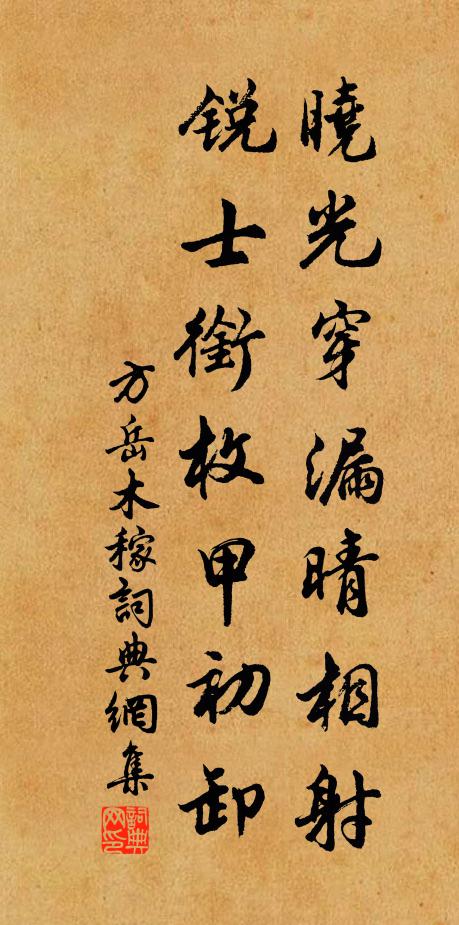 曉光穿漏晴相射
銳士銜枚甲初卸
方岳木稼詞典網集
詞典网印